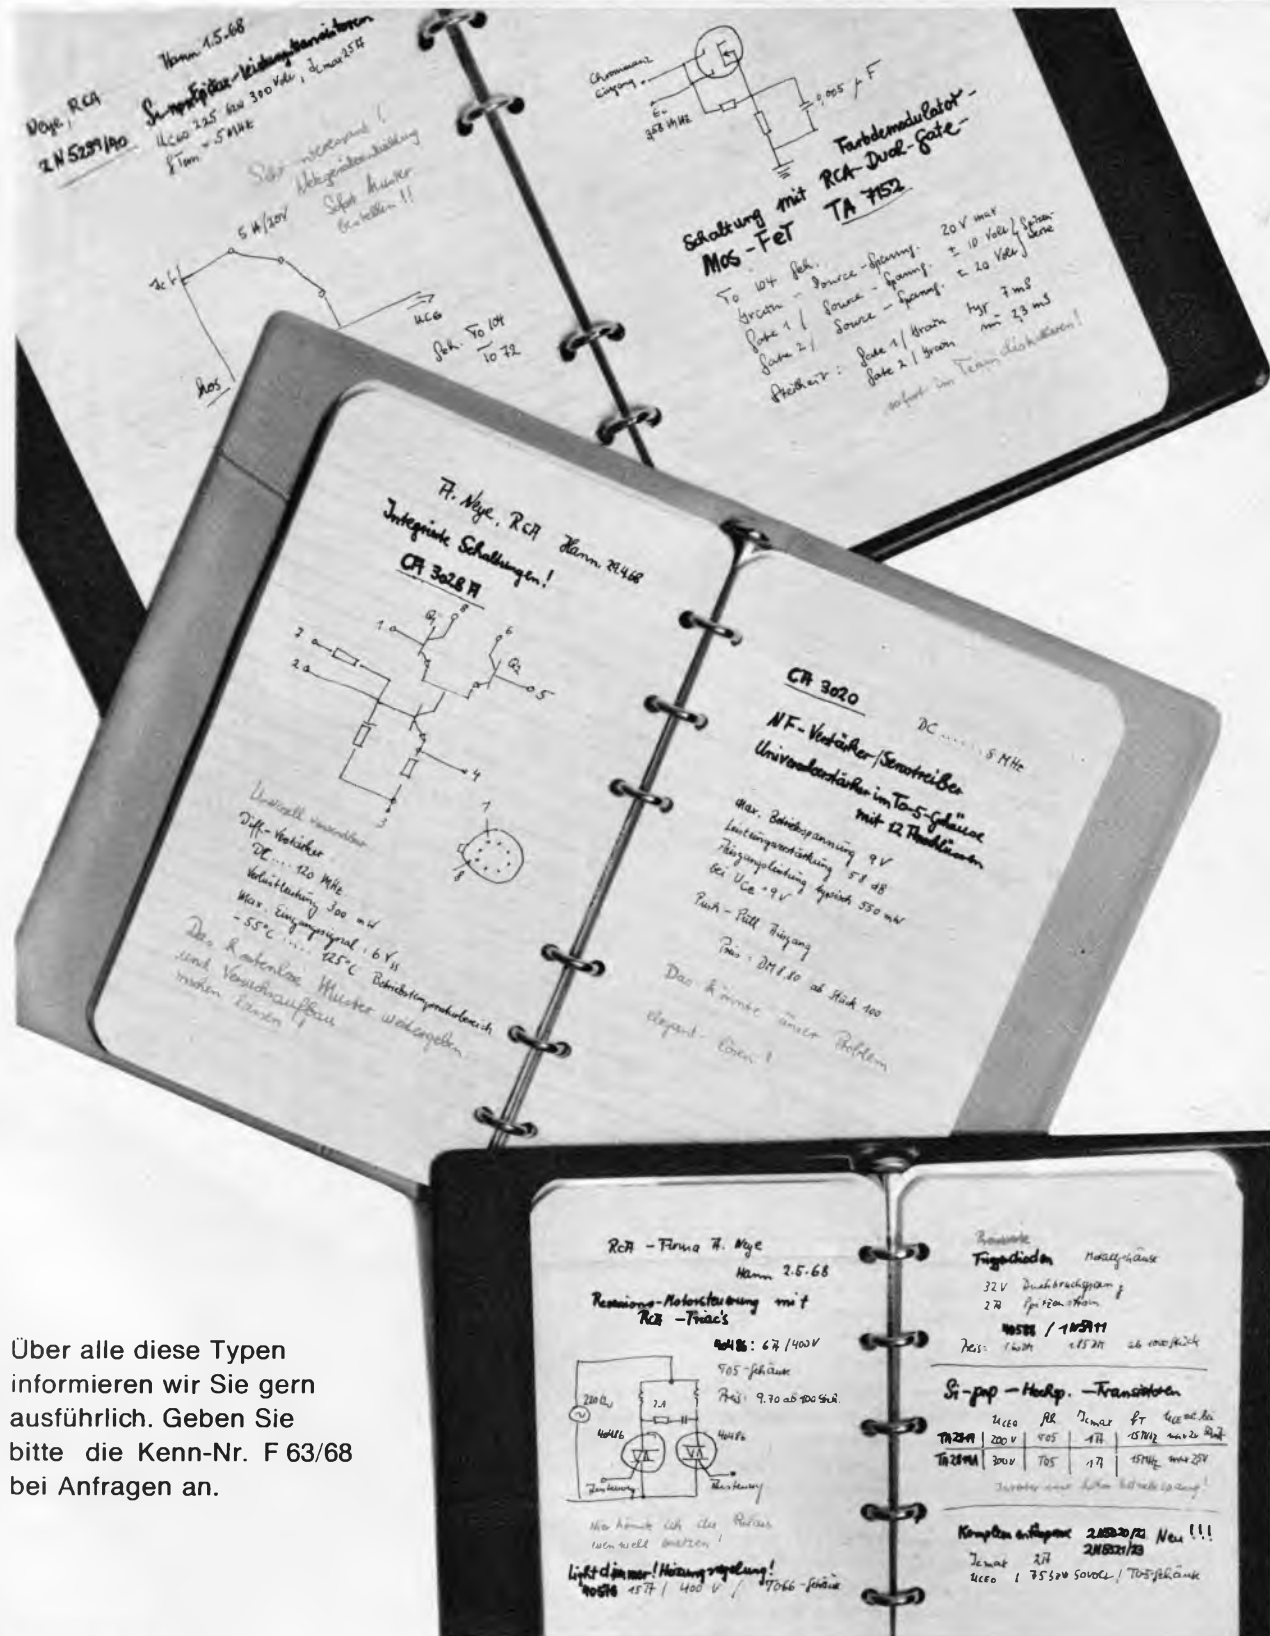 Hann 1.5.68
Neye, RCA
2N5239/40
UCEO 225 bzw 300 Volt, ICmax 25A
5 MHz
Sehr interessant!
Netzgeräteentwicklung
Sofort Muster
bestellen!!
5A/20V
UCE
Geh. To 104
To 72
Chrominanz
Eingang
3,58 MHz
0,005 µF
Farbdemodulator-
Schaltung mit RCA-Dual-Gate-
Mos-FeT TA 7152
To 104 Geh.
Drain - Source - Spanng. 20 V max
Gate 1 / Source - Spanng. ± 10 Volt
Gate 2 / Source - Spanng. ± 20 Volt
Steilheit: Gate 1 / Drain typ 7 mS
Gate 2 / Drain min 2,3 mS
sofort im Team diskutieren!
A. Neye, RCA Hann. 29.4.68
Integrierte Schaltungen!
CA 3028 A
Q1
8
1
6
Q2
7
2
5
4
3
1
8
Universell verwendbar
Diff.-Verstärker
DC .... 120 MHz
Verlustleistung 300 mW
Max. Eingangssignal ± 6 Vss
-55°C ..... 125°C Betriebstemperaturbereich
Das kostenlose Muster weitergeben
und Versuchsaufbau
machen lassen!
CA 3020
DC ....... 8 MHz
NF-Verstärker/Servotreiber
Universalverstärker im To-5-Gehäuse
mit 12 Anschlüssen
Max. Betriebsspannung 9V
Leistungsverstärkung 58 dB
Ausgangsleistung typisch 550 mW
bei UCE = 9V
Push-Pull Ausgang
Preis: DM 8.80 ab Stück 100
Das könnte unser Problem
elegant lösen!
RCA - Firma A. Neye
Hann 2.5.68
Reversions-Motorsteuerung mit
RCA - Triac's
40486: 6A/400V
TO5-Gehäuse
Preis: 9.70 ab 100 Stck.
220
40486
40486
Zusteuerung
Zusteuerung
Hier könnte ich die Relais
Lightdimmer! Heizungsregelung!
40576 15A / 400 V / TO66-Gehäuse
Triggerdioden Metallgehäuse
32V Durchbruchspanng
2A Spitzenstrom
Preis: ab 1000 Stück
Si-pnp - Hochsp. - Transistoren
UCEO Geh ICmax fT
200V TO5 1A 15MHz
300V TO5 1A 15MHz
Komplementärpaare 2N5320/22 Neu!!!
2N5321/23
ICmax 2A
UCEO / 75 bzw 50 Volt / TO5-Gehäuse
Über alle diese Typen
informieren wir Sie gern
ausführlich. Geben Sie
bitte die Kenn-Nr. F 63/68
bei Anfragen an.